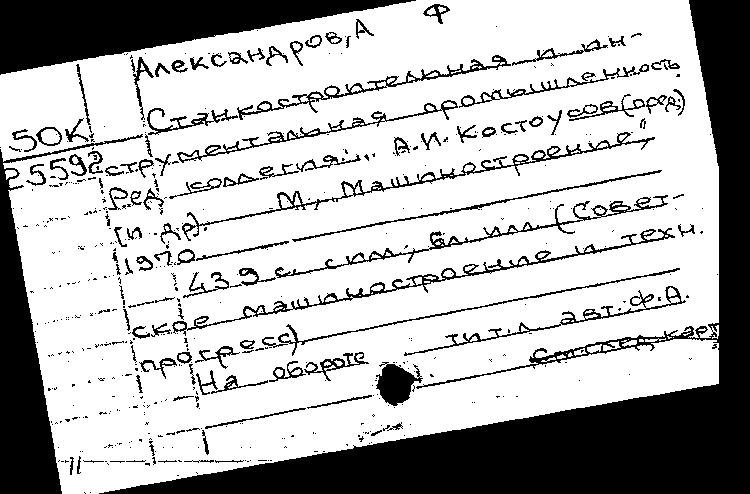 Александров, А Ф
50К
25592
Станкостроительная и ин-
струментальная промышленность
Ред. коллегия: А.И. Костоусов (пред.)
[и др]. М., „Машиностроение",
1970.
439 с. с илл.; 6л. илл (Совет-
ское машиностроение и техн.
прогресс)
На обороте тит.л авт.: Ф.А.
См след карт